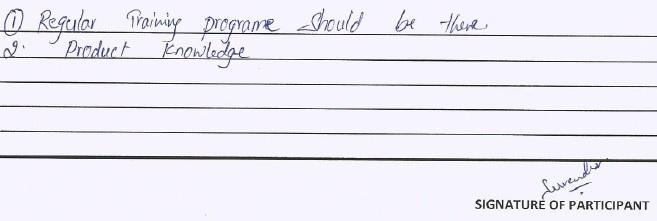 ① Regular Training programe should be there.
2. Product Knowledge
SIGNATURE OF PARTICIPANT